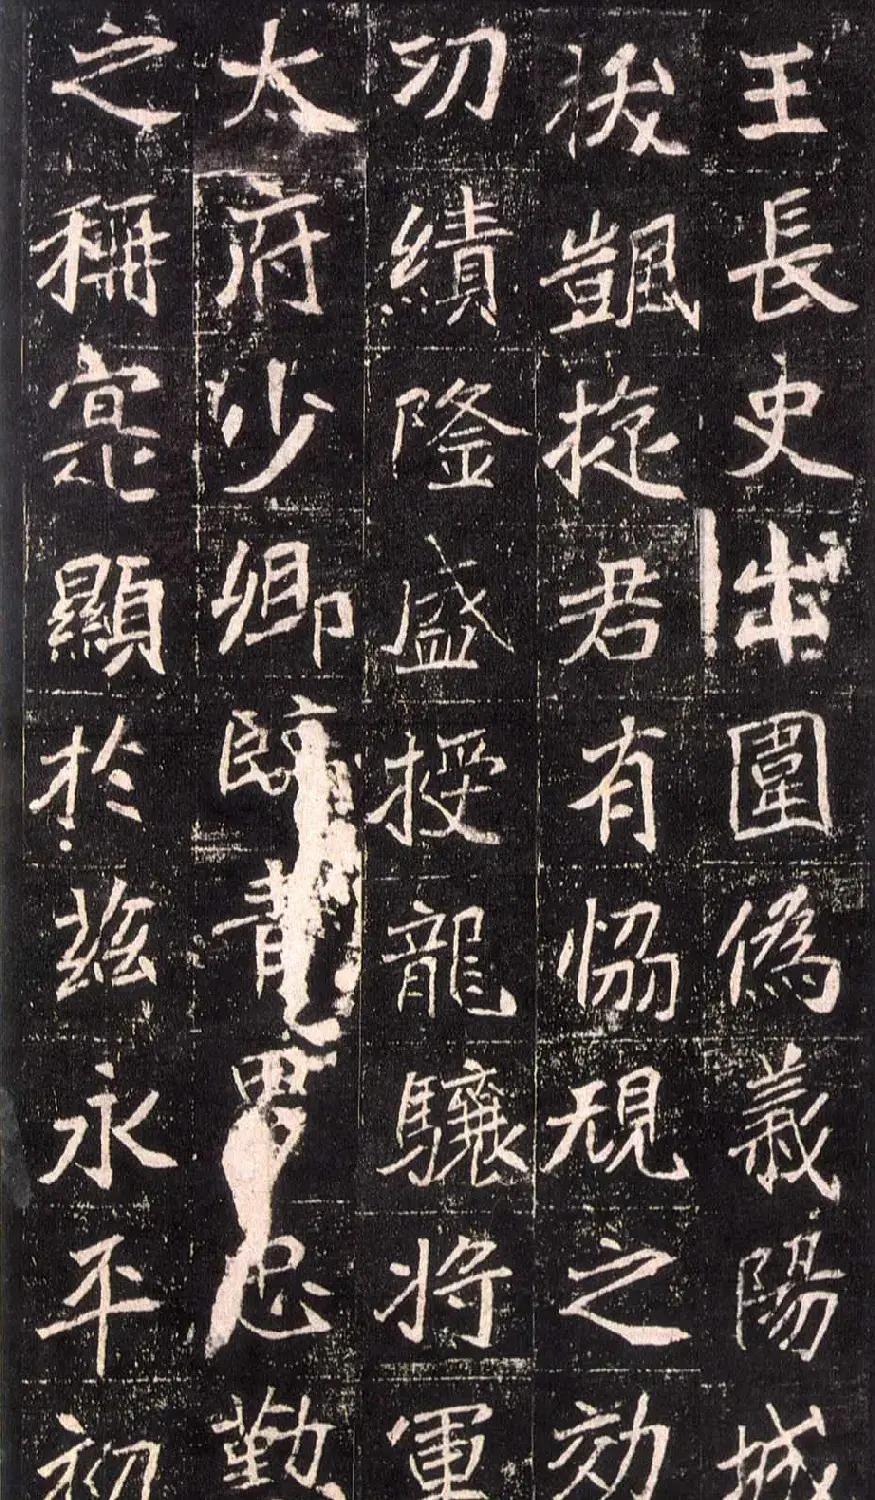 王長史出圍偽義陽城
拔颽旋君有恊規之効
功績隆盛授龍驤将軍
太府少卿臨青男忠勤
之稱寔顯於茲永平初